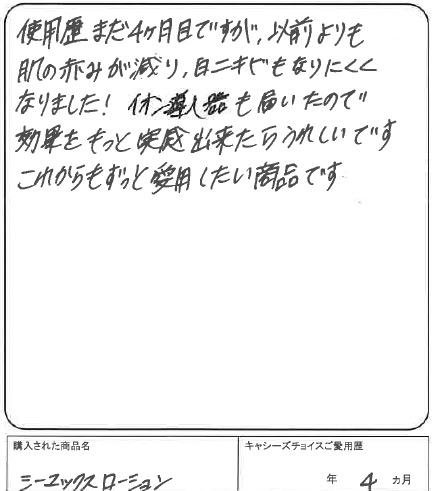 使用歴まだ4ヶ月目ですが、以前よりも
肌の赤みが減り、白ニキビもなりにくく
なりました! イオン導入器も届いたので
効果をもっと実感出来たらうれしいです
これからもずっと愛用したい商品です
購入された商品名
キャシーズチョイスご愛用歴
シーエックスローション
年 4 ヵ月